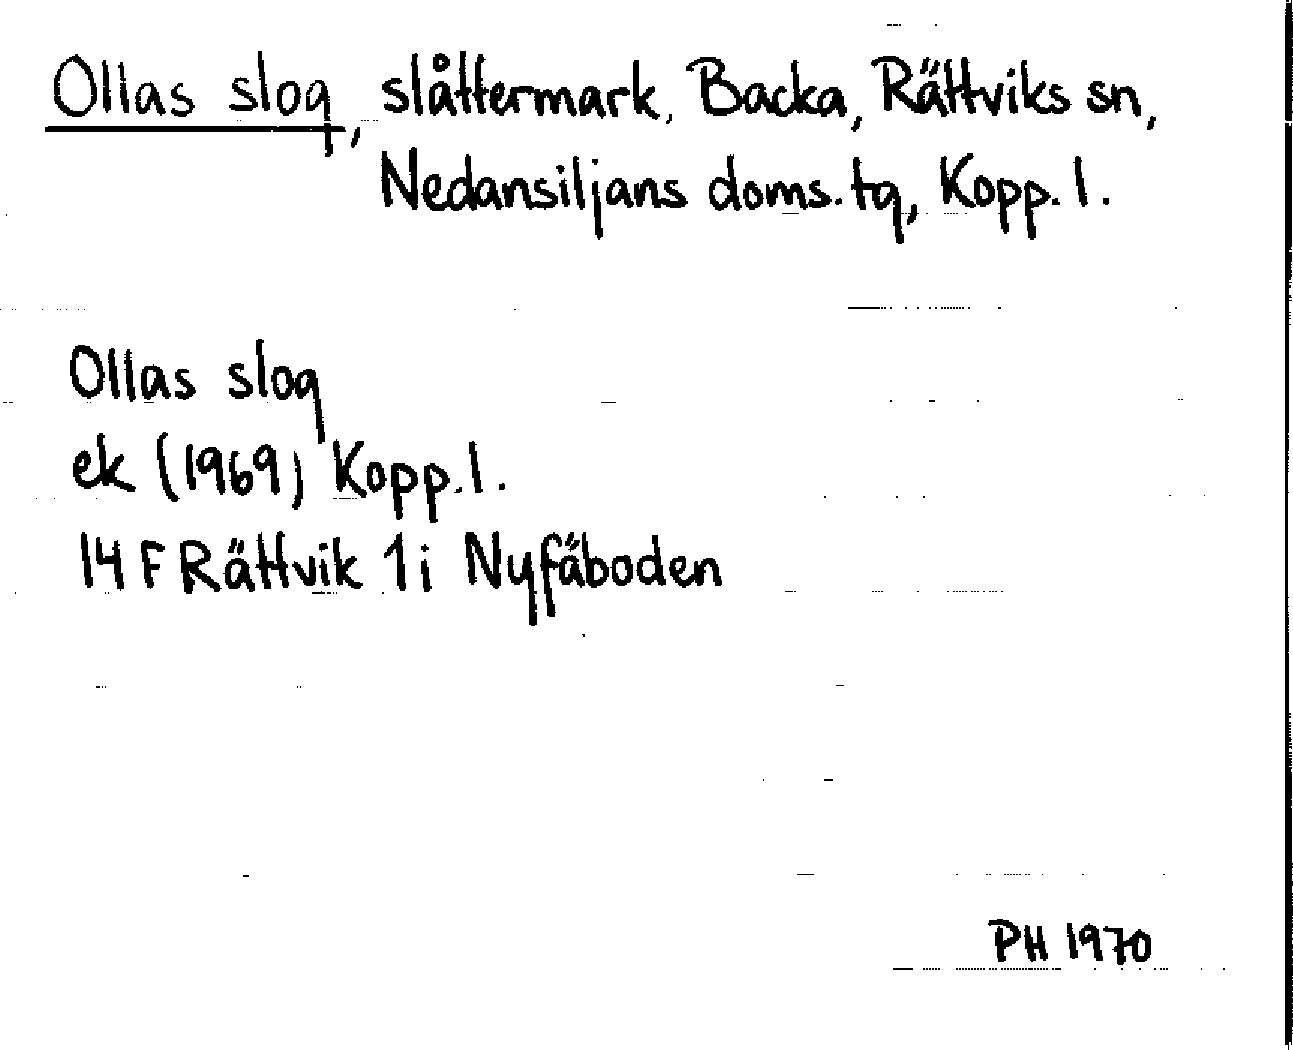 Ollas slog, slåttermark, Backa, Rättviks sn,
Nedansiljans doms. tg, Kopp. l.
Ollas slog
ek (1969) Kopp. l.
14 F Rättvik 1 i Nyfäboden
PH 1970